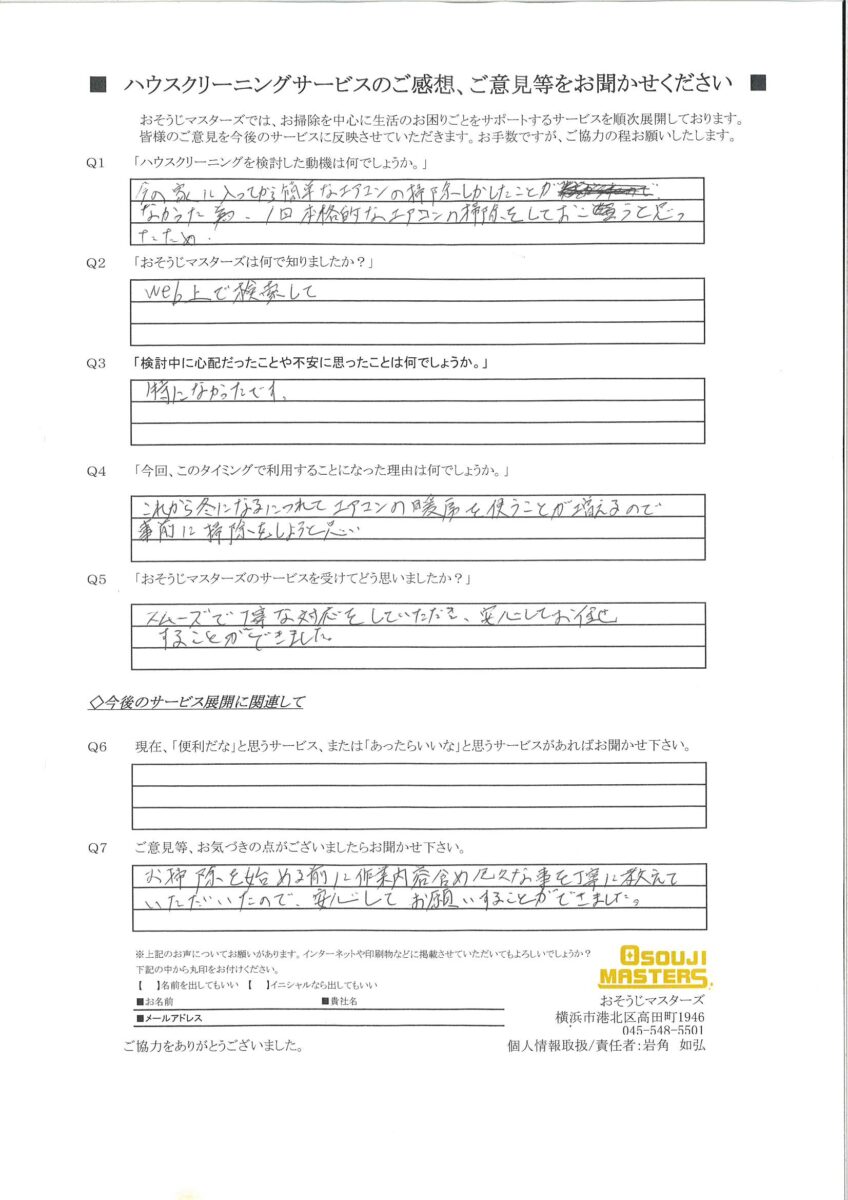 ■ ハウスクリーニングサービスのご感想、ご意見等をお聞かせください ■
おそうじマスターズでは、お掃除を中心に生活のお困りごとをサポートするサービスを順次展開しております。
皆様のご意見を今後のサービスに反映させていただきます。お手数ですが、ご協力の程お願いしたします。
Q1 「ハウスクリーニングを検討した動機は何でしょうか。」
今の家に入ってから簡単なエアコンの掃除しかしたことが
なかった為、1回本格的なエアコンの掃除をしておこうと思っ
たため.
Q2 「おそうじマスターズは何で知りましたか？」
web上で検索して
Q3 「検討中に心配だったことや不安に思ったことは何でしょうか。」
特になかったです。
Q4 「今回、このタイミングで利用することになった理由は何でしょうか。」
これから冬になるにつれてエアコンの暖房を使うことが増えるので
事前に掃除をしようと思い
Q5 「おそうじマスターズのサービスを受けてどう思いましたか？」
スムーズで丁寧な対応をしていただき、安心してお任せ
することができました。
◇今後のサービス展開に関連して
Q6 現在、「便利だな」と思うサービス、または「あったらいいな」と思うサービスがあればお聞かせ下さい。
Q7 ご意見等、お気づきの点がございましたらお聞かせ下さい。
お掃除を始める前に作業内容含め色々な事を丁寧に教えて
いただいたので、安心して お願いすることができました。
※上記のお声についてお願いがあります。インターネットや印刷物などに掲載させていただいてもよろしいでしょうか？
下記の中から丸印をお付けください。
【 】名前を出してもいい 【 】イニシャルなら出してもいい
■お名前 ■貴社名
■メールアドレス
ご協力をありがとうございました。
OSOUJI
MASTERS.
おそうじマスターズ
横浜市港北区高田町1946
045-548-5501
個人情報取扱/責任者:岩角 如弘